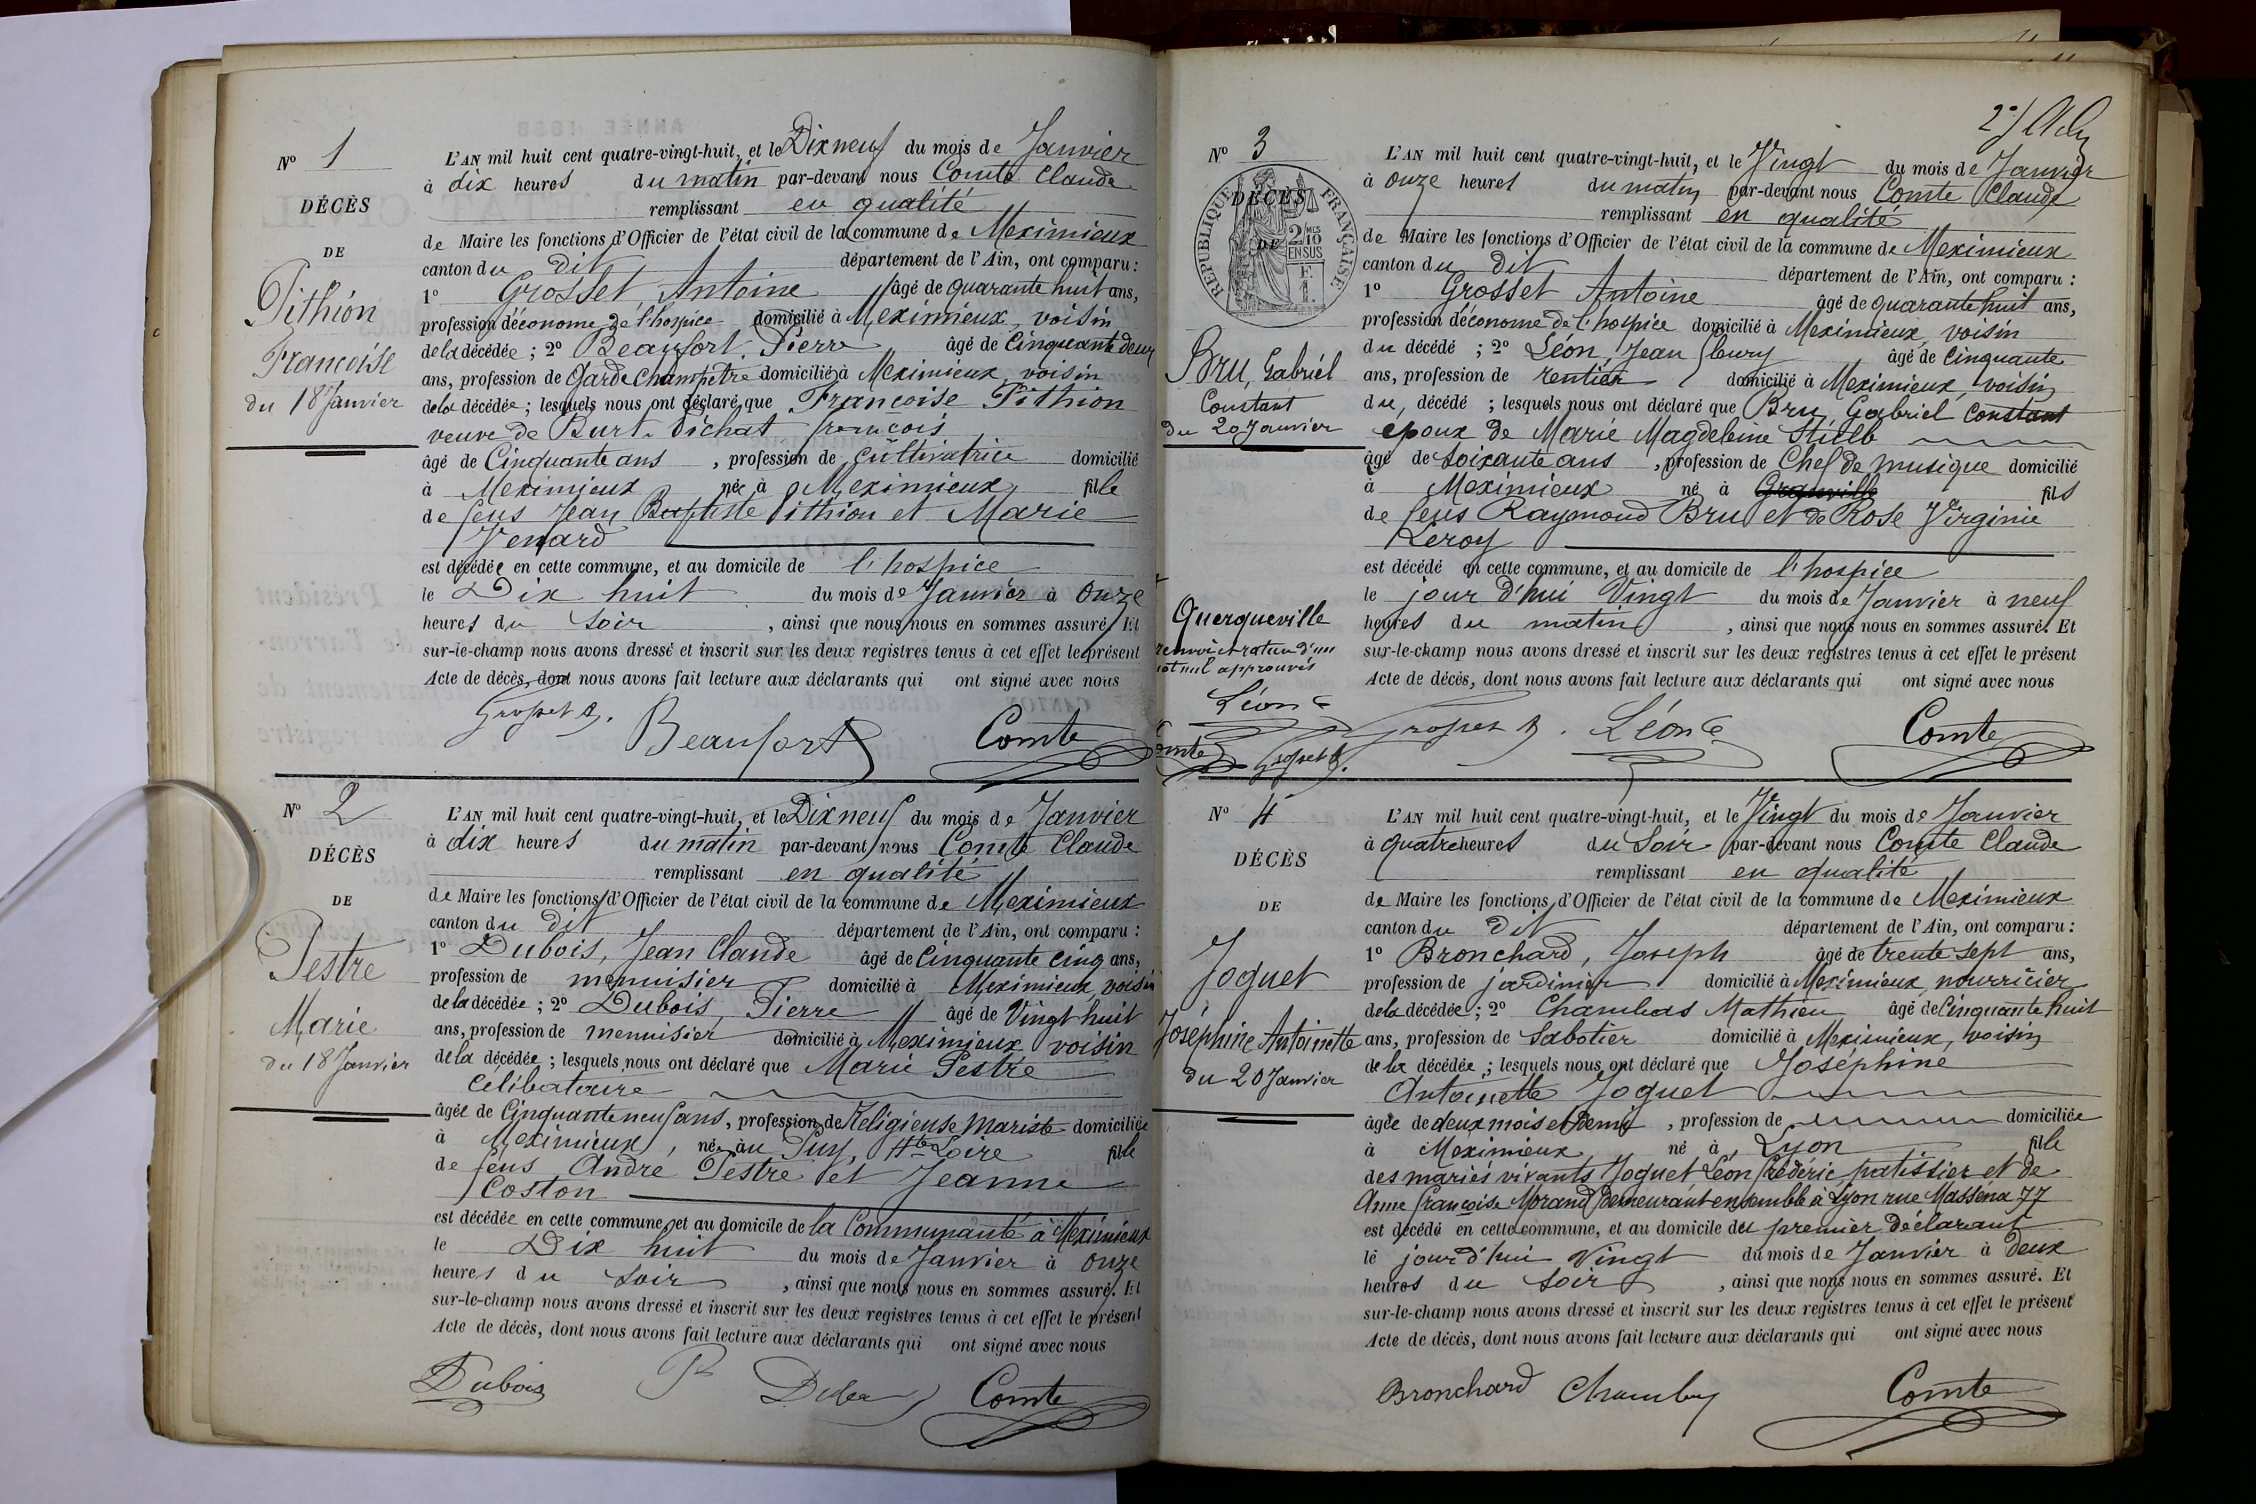 N° 1
DÉCÈS
DE
Pithion
Françoise
du 18 Janvier
L'AN mil huit cent quatre-vingt-huit, et le Dix neuf du mois de Janvier
à dix heures du matin par-devant nous Comte Claude
remplissant en qualité
de Maire les fonctions d'Officier de l'état civil de la commune de Meximieux
canton du dit département de l'Ain, ont comparu :
1° Grosset, Antoine âgé de quarante huit ans,
profession d'économe de l'hospice domicilié à Meximieux, voisin
de la décédée ; 2° Beaufort, Pierre âgé de Cinquante deux
ans, profession de Garde Champêtre domicilié à Meximieux, voisin
de la décédée ; lesquels nous ont déclaré que Françoise Pithion
veuve de Burt-Dichat françois
âgé de Cinquante ans , profession de cultivatrice domicilié
à Meximieux née à Meximieux fille
de feus Jean Baptiste Pithion et Marie
Venard
est décédée en cette commune, et au domicile de l'hospice
le Dix huit du mois de Janvier à onze
heures du soir , ainsi que nous nous en sommes assuré. Et
sur-le-champ nous avons dressé et inscrit sur les deux registres tenus à cet effet le présent
Acte de décès, dont nous avons fait lecture aux déclarants qui ont signé avec nous
Grosset A. Beaufort Comte
N° 2
DÉCÈS
DE
Pestre
Marie
du 18 Janvier
L'AN mil huit cent quatre-vingt-huit, et le Dix neuf du mois de Janvier
à dix heures du matin par-devant nous Comte Claude
remplissant en qualité
de Maire les fonctions d'Officier de l'état civil de la commune de Meximieux
canton du dit département de l'Ain, ont comparu :
1° Dubois, Jean Claude âgé de Cinquante cinq ans,
profession de menuisier domicilié à Meximieux, voisin
de la décédée ; 2° Dubois, Pierre âgé de Vingt huit
ans, profession de menuisier domicilié à Meximieux voisin
de la décédée ; lesquels nous ont déclaré que Marie Pestre
Célibataire
âgée de Cinquante neuf ans, profession de Religieuse Mariste domiciliée
à Meximieux, née au Puy, Hte Loire fille
de feus André Pestre et Jeanne
Coston
est décédée en cette commune, et au domicile de la Communauté à Meximieux
le Dix huit du mois de Janvier à onze
heures du soir , ainsi que nous nous en sommes assuré. Et
sur-le-champ nous avons dressé et inscrit sur les deux registres tenus à cet effet le présent
Acte de décès, dont nous avons fait lecture aux déclarants qui ont signé avec nous
Dubois P Dubois Comte
N° 3
DÉCÈS
DE
RÉPUBLIQUE FRANÇAISE
2/10 EN SUS
1 F.
Bru, Gabriel
Constant
du 20 Janvier
L'AN mil huit cent quatre-vingt-huit, et le Vingt du mois de Janvier
à onze heures du matin par-devant nous Comte Claude
remplissant en qualité
de Maire les fonctions d'Officier de l'état civil de la commune de Meximieux
canton du dit département de l'Ain, ont comparu :
1° Grosset Antoine âgé de quarante huit ans,
profession d'économe de l'hospice domicilié à Meximieux, voisin
du décédé ; 2° Léon, Jean fleury âgé de Cinquante
ans, profession de rentier domicilié à Meximieux, voisin
du, décédé ; lesquels nous ont déclaré que Bru, Gabriel Constant
époux de Marie Magdeleine Stielb
âgé de soixante ans , profession de Chef de musique domicilié
à Meximieux né à Granville fils
de feus Raymond Bru et de Rose Virginie
Leroy
est décédé en cette commune, et au domicile de l'hospice
le jour d'hui Vingt du mois de Janvier à neuf
heures du matin , ainsi que nous nous en sommes assuré. Et
sur-le-champ nous avons dressé et inscrit sur les deux registres tenus à cet effet le présent
Acte de décès, dont nous avons fait lecture aux déclarants qui ont signé avec nous
Querqueville
renvoi et rature d'un
mot nul approuvés
Léon
Comte Grosset A.
Grosset A. Léon Comte
N° 4
DÉCÈS
DE
Joguet
Joséphine Antoinette
du 20 Janvier
L'AN mil huit cent quatre-vingt-huit, et le Vingt du mois de Janvier
à quatre heures du Soir par-devant nous Comte Claude
remplissant en qualité
de Maire les fonctions d'Officier de l'état civil de la commune de Meximieux
canton du dit département de l'Ain, ont comparu :
1° Bronchard, Joseph âgé de trente sept ans,
profession de jardinier domicilié à Meximieux, nourricier
de la décédée ; 2° Chambas Mathieu âgé de Cinquante huit
ans, profession de Sabotier domicilié à Meximieux, voisin
de la décédée ; lesquels nous ont déclaré que Joséphine
Antoinette Joguet
âgée de deux mois et demi , profession de domiciliée
à Meximieux né à Lyon fille
des mariés vivants Joguet Léon frédéric, patissier et de
Anne françoise Morand demeurant ensemble à Lyon rue Masséna 77
est décédé en cette commune, et au domicile du premier déclarant
le jour d'hui Vingt du mois de Janvier à deux
heures du soir , ainsi que nous nous en sommes assuré. Et
sur-le-champ nous avons dressé et inscrit sur les deux registres tenus à cet effet le présent
Acte de décès, dont nous avons fait lecture aux déclarants qui ont signé avec nous
Bronchard Chambas Comte